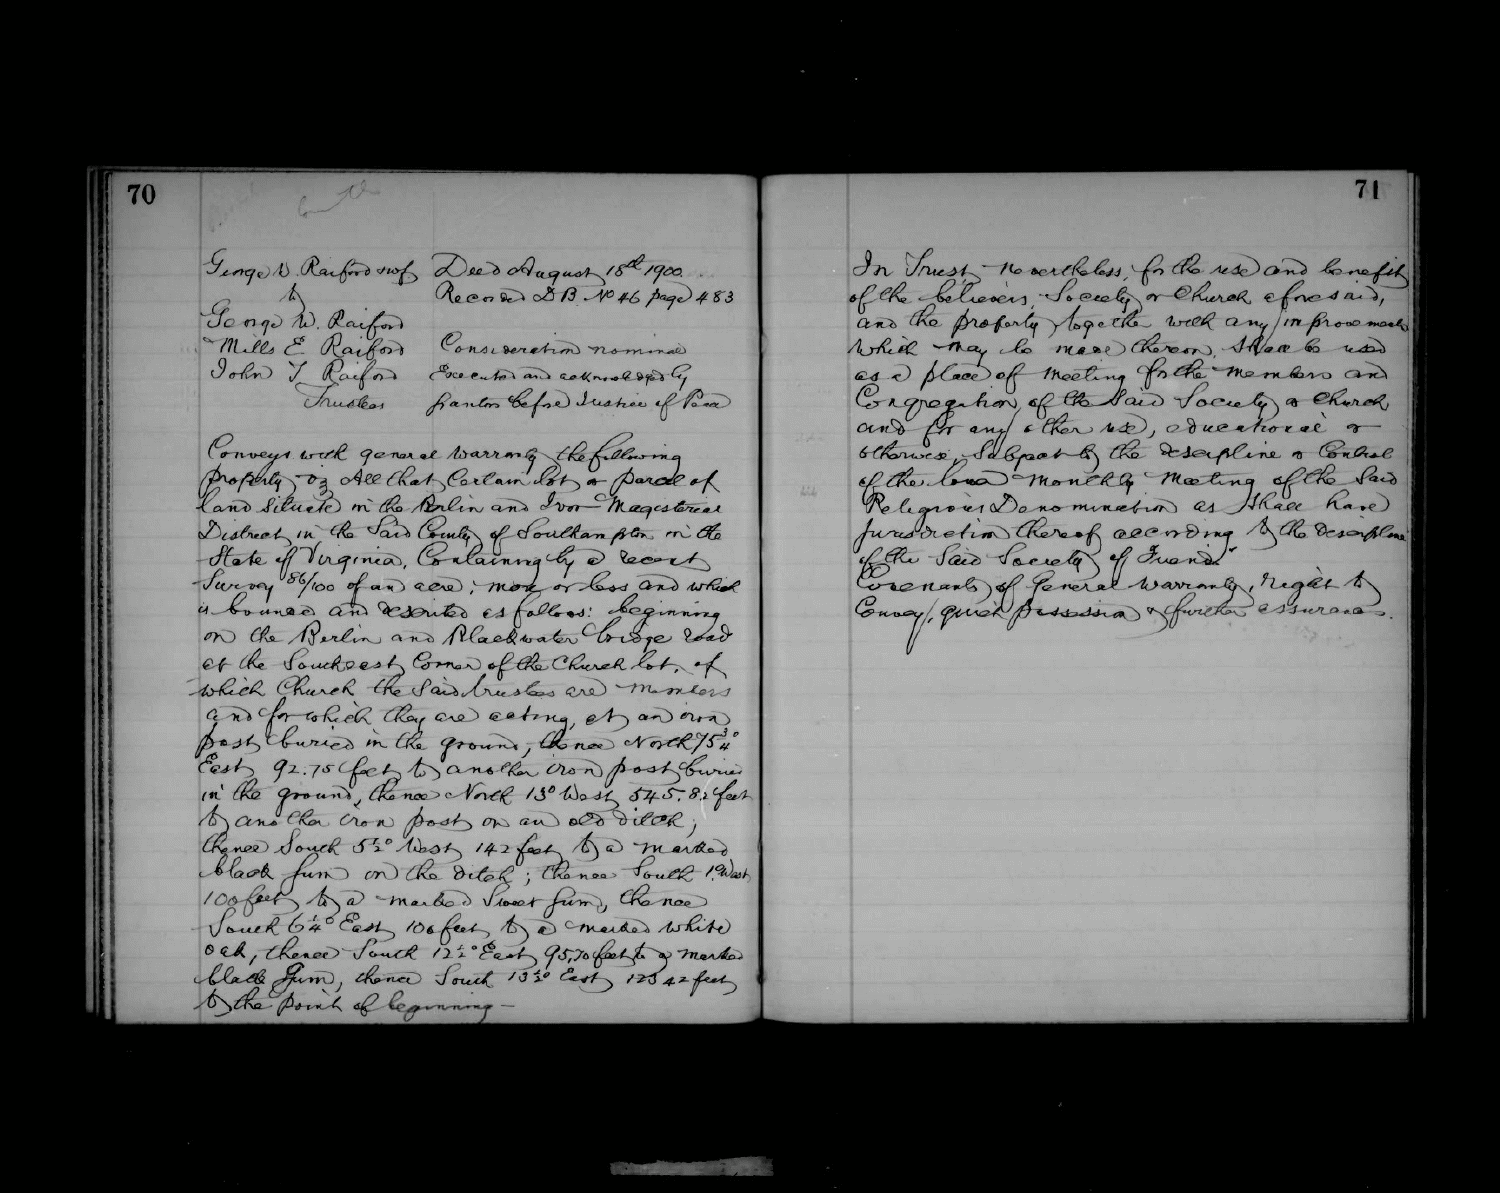 70
George W. Raiford & wf Deed August 18th 1900
to Recorded D.B. No 46 page 483
George W. Raiford
Mills E Raiford Consideration nominal
John T Raiford Executed and acknowledged by
Trustees grantors before Justice of Peace
Conveys with general warranty the following
property viz All that Certain lot or parcel of
land Situate in the Berlin and Ivor Magesterial
District in the Said County of Southampton in the
State of Virginia, Containing by a recent
Survey 86/100 of an acre; more or less and which
is bounded and described as follows: beginning
on the Berlin and Blackwater bridge road
at the Southeast Corner of the Church lot, of
which Church the Said trustees are members
and for which they are acting, at an iron
post buried in the ground, thence North 75 3/4°
East 92.75 feet to another iron post buried
in the ground, thence North 13° West 545.82 feet
to another iron post on an old ditch;
thence South 5 1/2° West 142 feet to a marked
black gum on the ditch; thence South 1° West
100 feet to a marked Sweet gum, thence
South 6 1/4° East 100 feet to a marked white
oak, thence South 12 1/2° East 95,70 feet to a marked
black Gum, thence South 13 1/2° East 123 42 feet
to the point of beginning —
71
In Trust, nevertheless, for the use and benefit
of the believers, Society or Church aforesaid,
and the property, together with any improvements
which may be made thereon, shall be used
as a place of meeting for the members and
Congregation of the Said Society or Church
and for any other use, educational or
otherwise, Subject to the descipline or Control
of the local monthly meeting of the Said
Religious Denomination as Shall have
jurisdiction thereof according to the descipline
of the Said Society of Friends"
Covenants of General warranty, right to
Convey, quiet possession & further assurances.